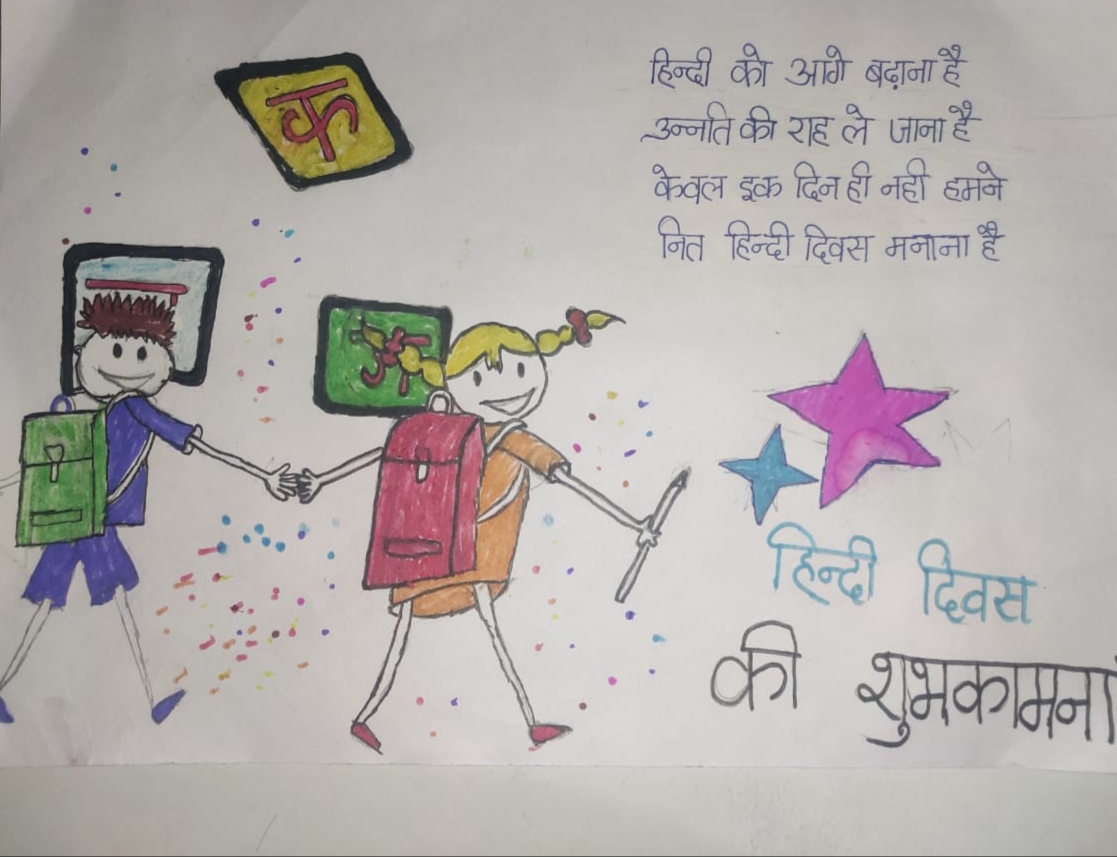 क
हिन्दी को आगे बढ़ाना है
उन्नति की राह ले जाना है
केवल इक दिन ही नही हमने
नित हिन्दी दिवस मनाना है
हिन्दी दिवस
की शुभकामना